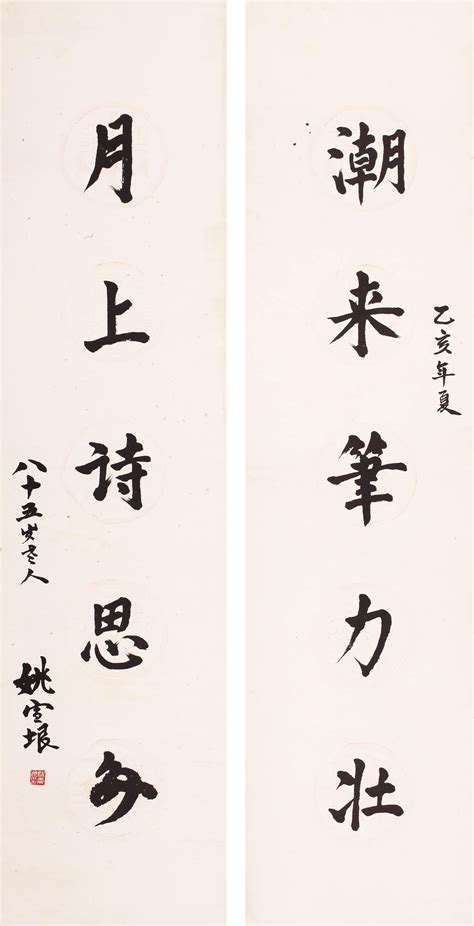 乙亥年夏
潮来筆力壮
月上诗思多
八十五岁老人
姚宣垠